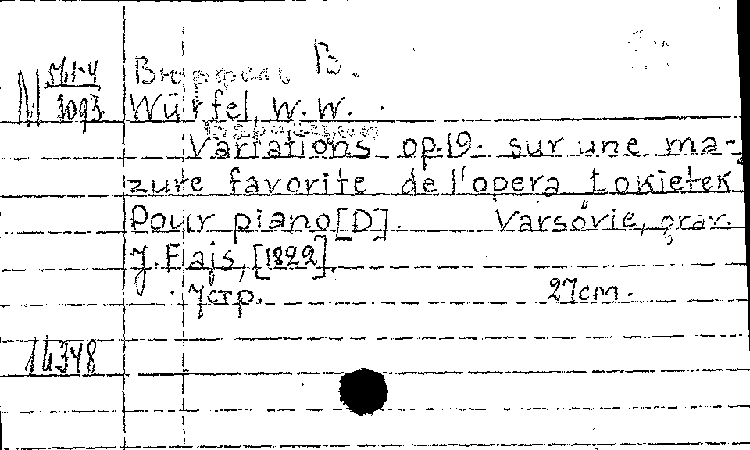 Вюрфель В.
М 561-4
3093
Würfel, W. W.
Вариации
Variations op.19. sur une ma-
zure favorite de l'opera Łokietek
Pour piano [D]. Varsovie, grav.
J. Fajs, [1822].
7 стр. 27 cm.
14348